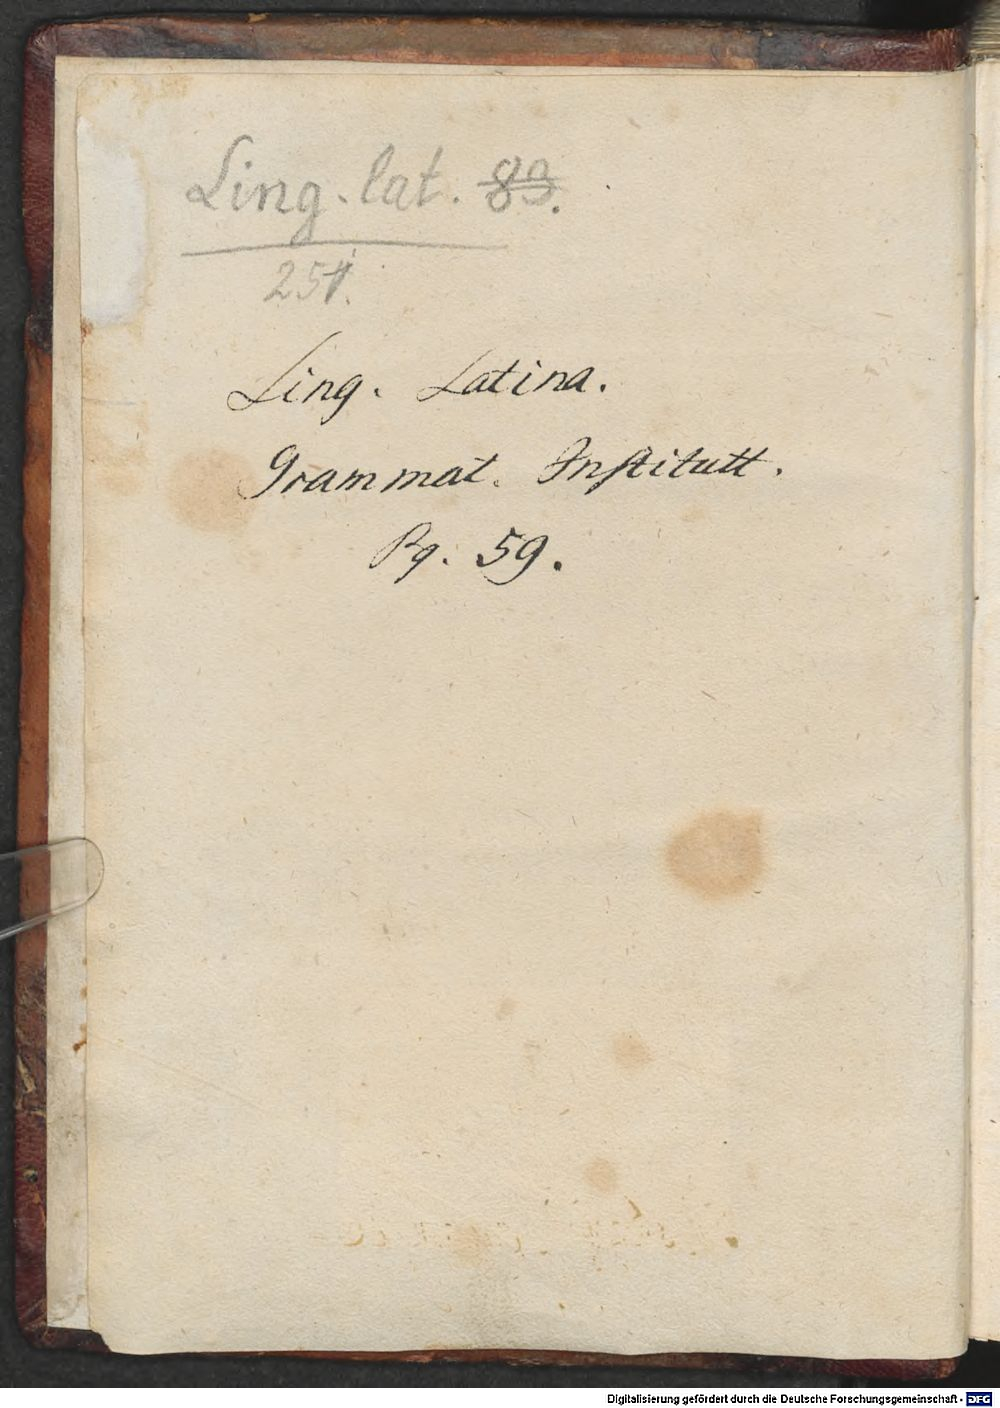 Ling. lat. 89.
251.
Ling. Latina.
Grammat. Institutt.
Pg. 59.
Digitalisierung gefördert durch die Deutsche Forschungsgemeinschaft - DFG